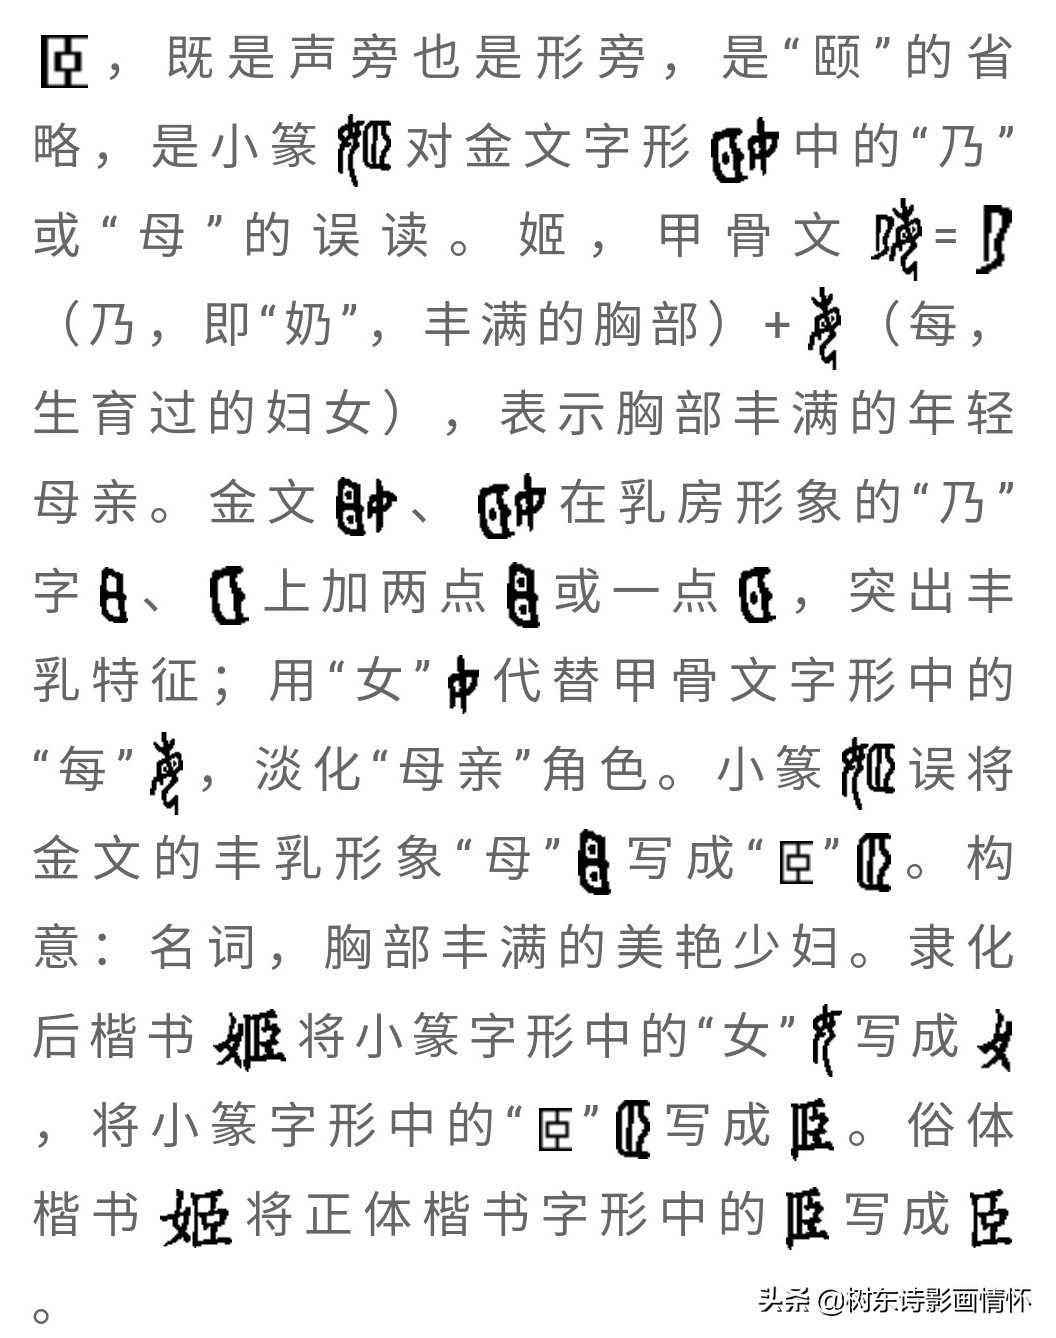 𦣞，既是声旁也是形旁，是“颐”的省
略，是小篆对金文字形中的“乃”
或“母”的误读。姬，甲骨文=
（乃，即“奶”，丰满的胸部）+（每，
生育过的妇女），表示胸部丰满的年轻
母亲。金文、在乳房形象的“乃”
字、上加两点或一点，突出丰
乳特征；用“女”代替甲骨文字形中的
“每”，淡化“母亲”角色。小篆误将
金文的丰乳形象“母”写成“𦣞”。构
意：名词，胸部丰满的美艳少妇。隶化
后楷书姬将小篆字形中的“女”写成女
，将小篆字形中的“𦣞”写成𦣞。俗体
楷书姬将正体楷书字形中的𦣞写成臣
。
头条 @树东诗影画情怀